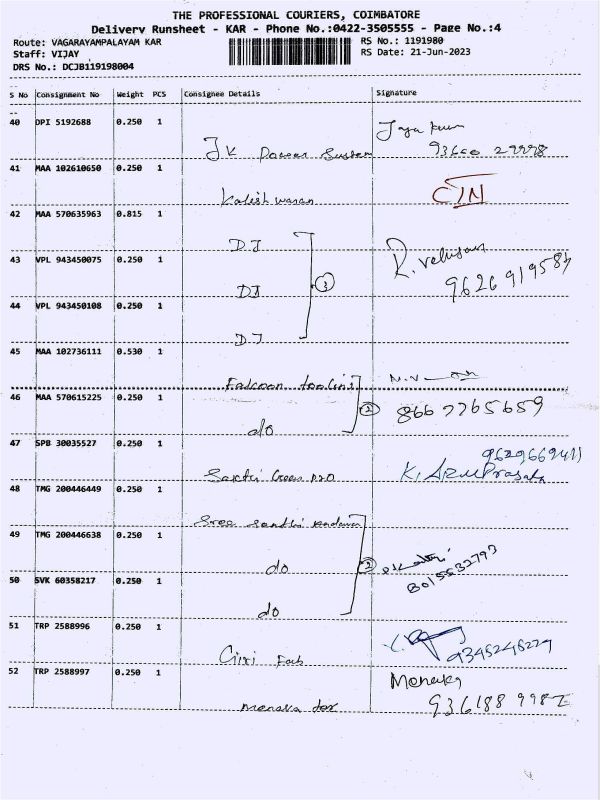 THE PROFESSIONAL COURIERS, COIMBATORE
Delivery Runsheet - KAR - Phone No.:0422-3505555 - Page No.:4
Route: VAGARAYAMPALAYAM KAR
RS No.: 1191980
Staff: VIJAY
RS Date: 21-Jun-2023
DRS No.: DCJB119198004
S No Consignment No Weight PCS Consignee Details Signature
40 DPI 5192688 0.250 1
JK Power
41 MAA 102610650 0.250 1
42 MAA 570635963 0.815 1
DJ
43 VPL 943450075 0.250 1
R. Velusam
DJ 3
9626919584
44 VPL 943450108 0.250 1
DJ
45 MAA 102736111 0.530 1
46 MAA 570615225 0.250 1
2 8667765659
do
47 SPB 30035527 0.250 1
9629669411
Sakthi Green
48 TMG 200446449 0.250 1
Sree
49 TMG 200446638 0.250 1
do
8015532793
50 SVK 60358217 0.250 1
do
51 TRP 2588996 0.250 1
Giri Fab
9345246229
52 TRP 2588997 0.250 1
Menaka
menaka tex